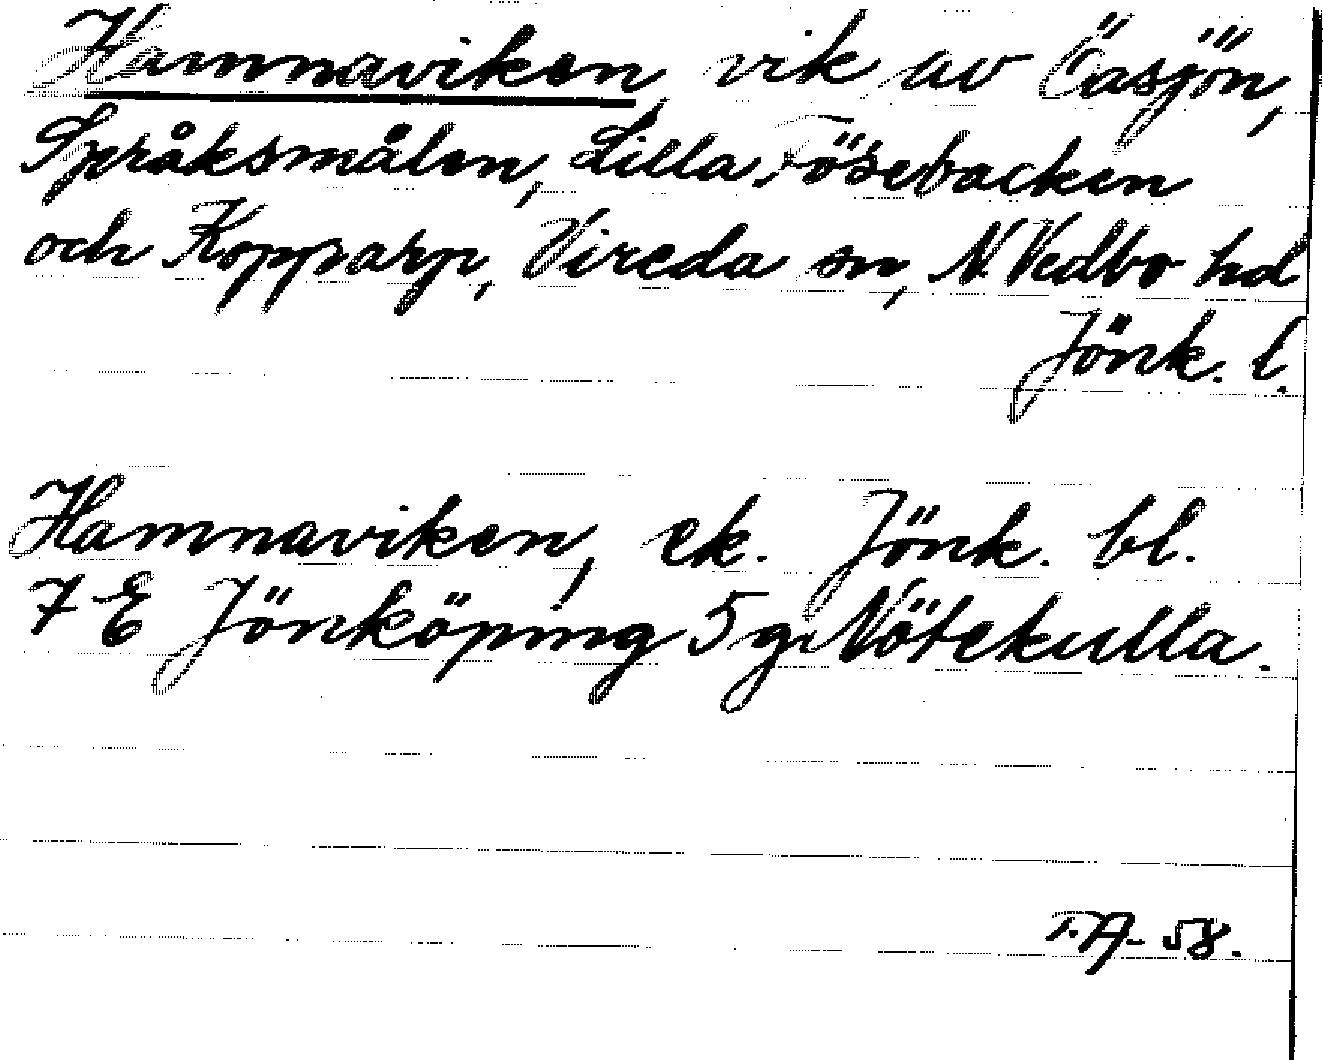 Hamnaviken, vik av Öasjön,
Språksmålen, Lilla Fösebacken
och Kopparp, Vireda sn, N Vedbo hd
Jönk. l.
Hamnaviken, ek. Jönk. bl.
7 E Jönköping 5 g Nötekulla.
F.A- 58.